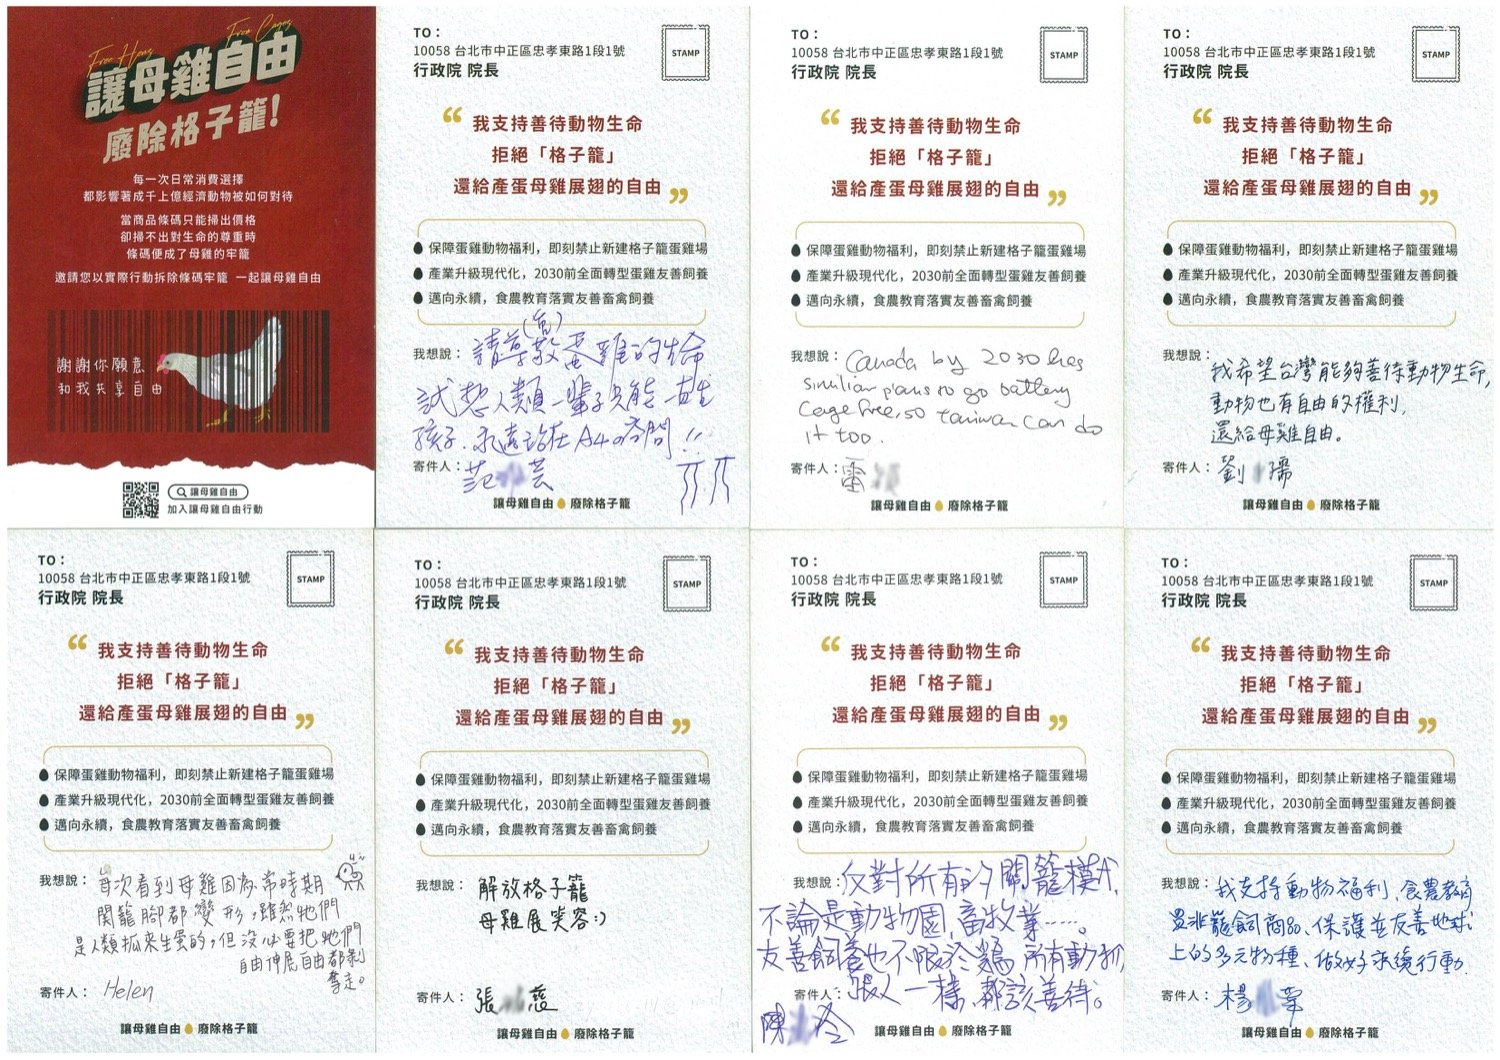 Free Hens
Free Cages
讓母雞自由
廢除格子籠!
每一次日常消費選擇
都影響著成千上億經濟動物被如何對待
當商品條碼只能掃出價格
卻掃不出對生命的尊重時
條碼便成了母雞的牢籠
邀請您以實際行動拆除條碼牢籠 一起讓母雞自由
謝謝你願意
和我共享自由
讓母雞自由
加入讓母雞自由行動
TO：
10058 台北市中正區忠孝東路1段1號
行政院 院長
STAMP
“我支持善待動物生命
拒絕「格子籠」
還給產蛋母雞展翅的自由”
保障蛋雞動物福利，即刻禁止新建格子籠蛋雞場
產業升級現代化，2030前全面轉型蛋雞友善飼養
邁向永續，食農教育落實友善畜禽飼養
我想說：請尊敬蛋雞的生命
試想人類一輩子只能一直生
孩子.永遠站在A4の空間!!
寄件人：范 芸
讓母雞自由 廢除格子籠
TO：
10058 台北市中正區忠孝東路1段1號
行政院 院長
STAMP
“我支持善待動物生命
拒絕「格子籠」
還給產蛋母雞展翅的自由”
保障蛋雞動物福利，即刻禁止新建格子籠蛋雞場
產業升級現代化，2030前全面轉型蛋雞友善飼養
邁向永續，食農教育落實友善畜禽飼養
我想說：Canada by 2030 has
similiar plans to go battery
cage free, so taiwan can do
it too.
寄件人：雷
讓母雞自由 廢除格子籠
TO：
10058 台北市中正區忠孝東路1段1號
行政院 院長
STAMP
“我支持善待動物生命
拒絕「格子籠」
還給產蛋母雞展翅的自由”
保障蛋雞動物福利，即刻禁止新建格子籠蛋雞場
產業升級現代化，2030前全面轉型蛋雞友善飼養
邁向永續，食農教育落實友善畜禽飼養
我想說：我希望台灣能夠善待動物生命,
動物也有自由的權利,
還給母雞自由。
寄件人：劉 孺
讓母雞自由 廢除格子籠
TO：
10058 台北市中正區忠孝東路1段1號
行政院 院長
STAMP
“我支持善待動物生命
拒絕「格子籠」
還給產蛋母雞展翅的自由”
保障蛋雞動物福利，即刻禁止新建格子籠蛋雞場
產業升級現代化，2030前全面轉型蛋雞友善飼養
邁向永續，食農教育落實友善畜禽飼養
我想說：每次看到母雞因為常時期
關籠腳都變形,雖然牠們
是人類抓來生蛋的,但沒必要把牠們
自由伸展自由都剝
奪走。
寄件人：Helen
讓母雞自由 廢除格子籠
TO：
10058 台北市中正區忠孝東路1段1號
行政院 院長
STAMP
“我支持善待動物生命
拒絕「格子籠」
還給產蛋母雞展翅的自由”
保障蛋雞動物福利，即刻禁止新建格子籠蛋雞場
產業升級現代化，2030前全面轉型蛋雞友善飼養
邁向永續，食農教育落實友善畜禽飼養
我想說：解放格子籠
母雞展笑容:)
寄件人：張 慈
讓母雞自由 廢除格子籠
TO：
10058 台北市中正區忠孝東路1段1號
行政院 院長
STAMP
“我支持善待動物生命
拒絕「格子籠」
還給產蛋母雞展翅的自由”
保障蛋雞動物福利，即刻禁止新建格子籠蛋雞場
產業升級現代化，2030前全面轉型蛋雞友善飼養
邁向永續，食農教育落實友善畜禽飼養
我想說：反對所有的關籠模式,
不論是動物園,畜牧業……。
友善飼養也不限於雞,所有動物,
跟人一樣,都該善待。
寄件人：陳 冷
讓母雞自由 廢除格子籠
TO：
10058 台北市中正區忠孝東路1段1號
行政院 院長
STAMP
“我支持善待動物生命
拒絕「格子籠」
還給產蛋母雞展翅的自由”
保障蛋雞動物福利，即刻禁止新建格子籠蛋雞場
產業升級現代化，2030前全面轉型蛋雞友善飼養
邁向永續，食農教育落實友善畜禽飼養
我想說：我支持動物福利、食農教育
非籠飼商品、保護並友善地球
上的多元物種、做好永續行動.
寄件人：楊
讓母雞自由 廢除格子籠